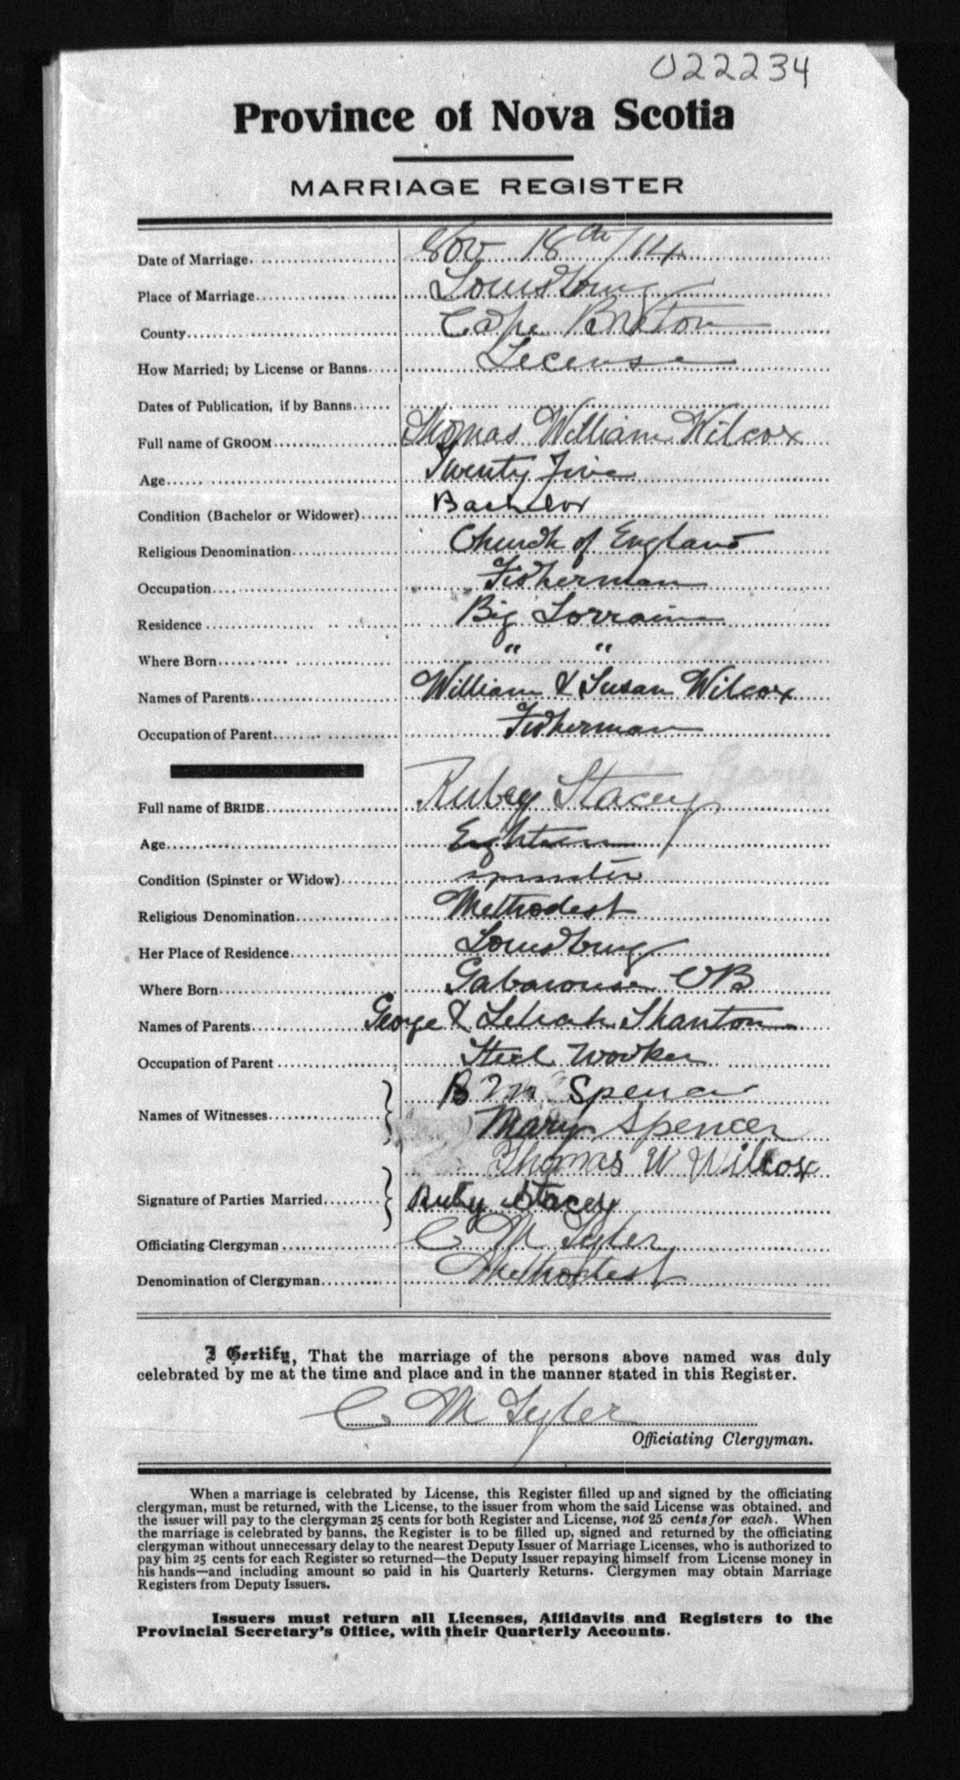 022234
Province of Nova Scotia
MARRIAGE REGISTER
Date of Marriage Nov 18th/14
Place of Marriage Louisburg
County Cape Breton
How Married; by License or Banns License
Dates of Publication, if by Banns
Full name of GROOM Thomas William Wilcox
Age Twenty Five
Condition (Bachelor or Widower) Bachelor
Religious Denomination Church of England
Occupation Fisherman
Residence Big Lorraine
Where Born " "
Names of Parents William & Susan Wilcox
Occupation of Parent Fisherman
Full name of BRIDE Rubey Stacey
Age Eighteen
Condition (Spinster or Widow) spinster
Religious Denomination Methodest
Her Place of Residence Louisburg
Where Born Gabarouse CB
Names of Parents George & Shanton
Occupation of Parent Steel Worker
B M Spencer
Names of Witnesses
Mary Spencer
Thomas W Wilcox
Signature of Parties Married Ruby Stacey
Officiating Clergyman C M Tyler
Denomination of Clergyman Methodest
I Certify, That the marriage of the persons above named was duly
celebrated by me at the time and place and in the manner stated in this Register.
C M Tyler
Officiating Clergyman.
When a marriage is celebrated by License, this Register filled up and signed by the officiating
clergyman, must be returned, with the License, to the issuer from whom the said License was obtained, and
the issuer will pay to the clergyman 25 cents for both Register and License, not 25 cents for each. When
the marriage is celebrated by banns, the Register is to be filled up, signed and returned by the officiating
clergyman without unnecessary delay to the nearest Deputy Issuer of Marriage Licenses, who is authorized to
pay him 25 cents for each Register so returned—the Deputy Issuer repaying himself from License money in
his hands—and including amount so paid in his Quarterly Returns. Clergymen may obtain Marriage
Registers from Deputy Issuers.
Issuers must return all Licenses, Affidavits and Registers to the
Provincial Secretary's Office, with their Quarterly Accounts.